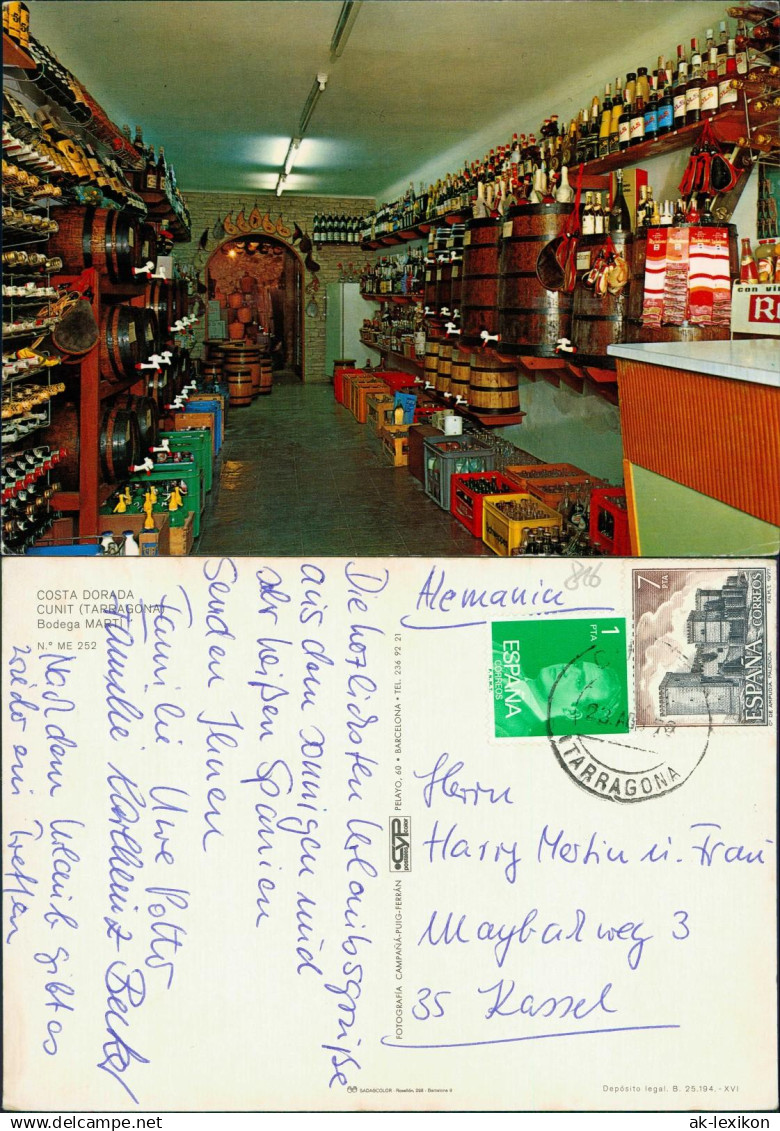 COSTA DORADA
CUNIT (TARRAGONA)
Bodega MARTÍ
N.º ME 252
Die herzlichsten Urlaubsgrüße
aus dem sonnigen und
sehr heißen Spanien
senden Ihnen
Familie Uwe Potto
Familie Karlheinz Becker
Nach dem Urlaub gibt es
wieder ein Treffen
FOTOGRAFÍA CAMPAÑÁ-PUIG-FERRÁN
CYP
PELAYO, 60 • BARCELONA • TEL. 236 92 21
Alemania
816
1
PTA
ESPAÑA
CORREOS
7
PTA
ESPAÑA
CORREOS
TARRAGONA
Herrn
Harry Mertin u. Frau
Maybachweg 3
35 Kassel
SADAGCOLOR
Depósito legal. B. 25.194.-XVI
www.delcampe.net
ak-lexikon